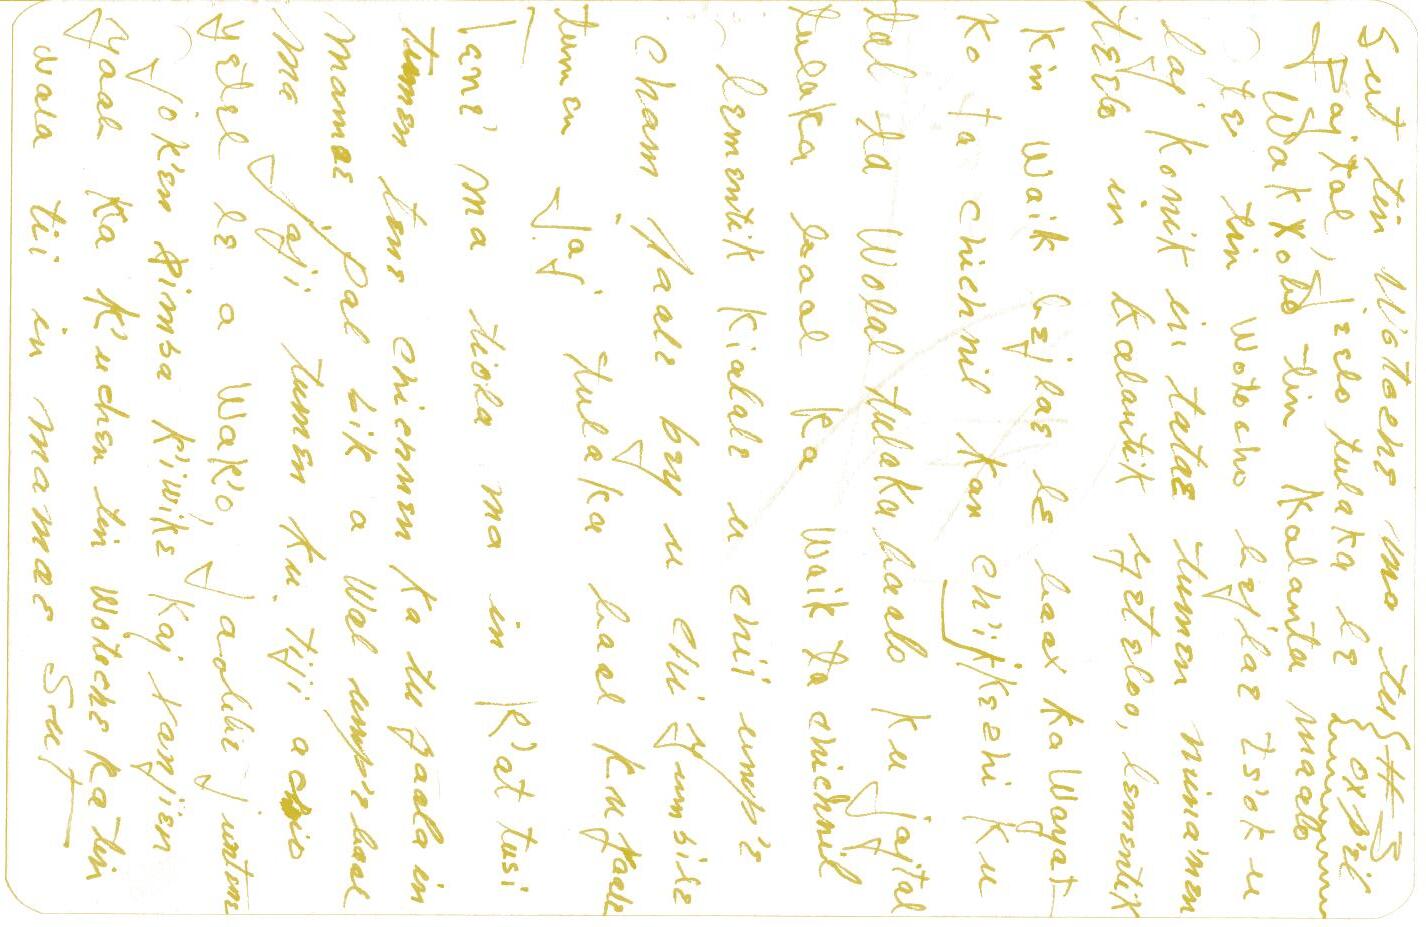 Sut tin Wotochs ma tus #3
Jajtal, jelo tulaka le oxp'el
Wakx'obo tin Kalanta maalo
te tin Wotocho bejlae ts'ok u
laj Konik in tatae tumen mina'men
tElo in Kalantik yeteloo, lementik
Kin Waik bejlae le baax ka Wayat
Ko ta chichnil Kan chijkeni Ku
tal ta Wolal tulaka baalo Ku jajtal
tulaka baal Ka Waik ta chichnil
lementik Kialale u chii ump'e
Cham paale bey u chii yumbile
tumen jaj tulaka baal Ku yaale
lene' ma tiola ma in K'at tusi
tumen tene chichnen Ka tu yaala in
mamae Pal bik a Wal ump'e baal
ma jaji tumen Ku tiji a chio
yetel le a Wak'o, yaolie juntun
jok'en Pimsa K'iwike Kaj Kanjien
yaal Ka K'uchen tin Wotoche Ka tin
Waala tii in mamae Sut